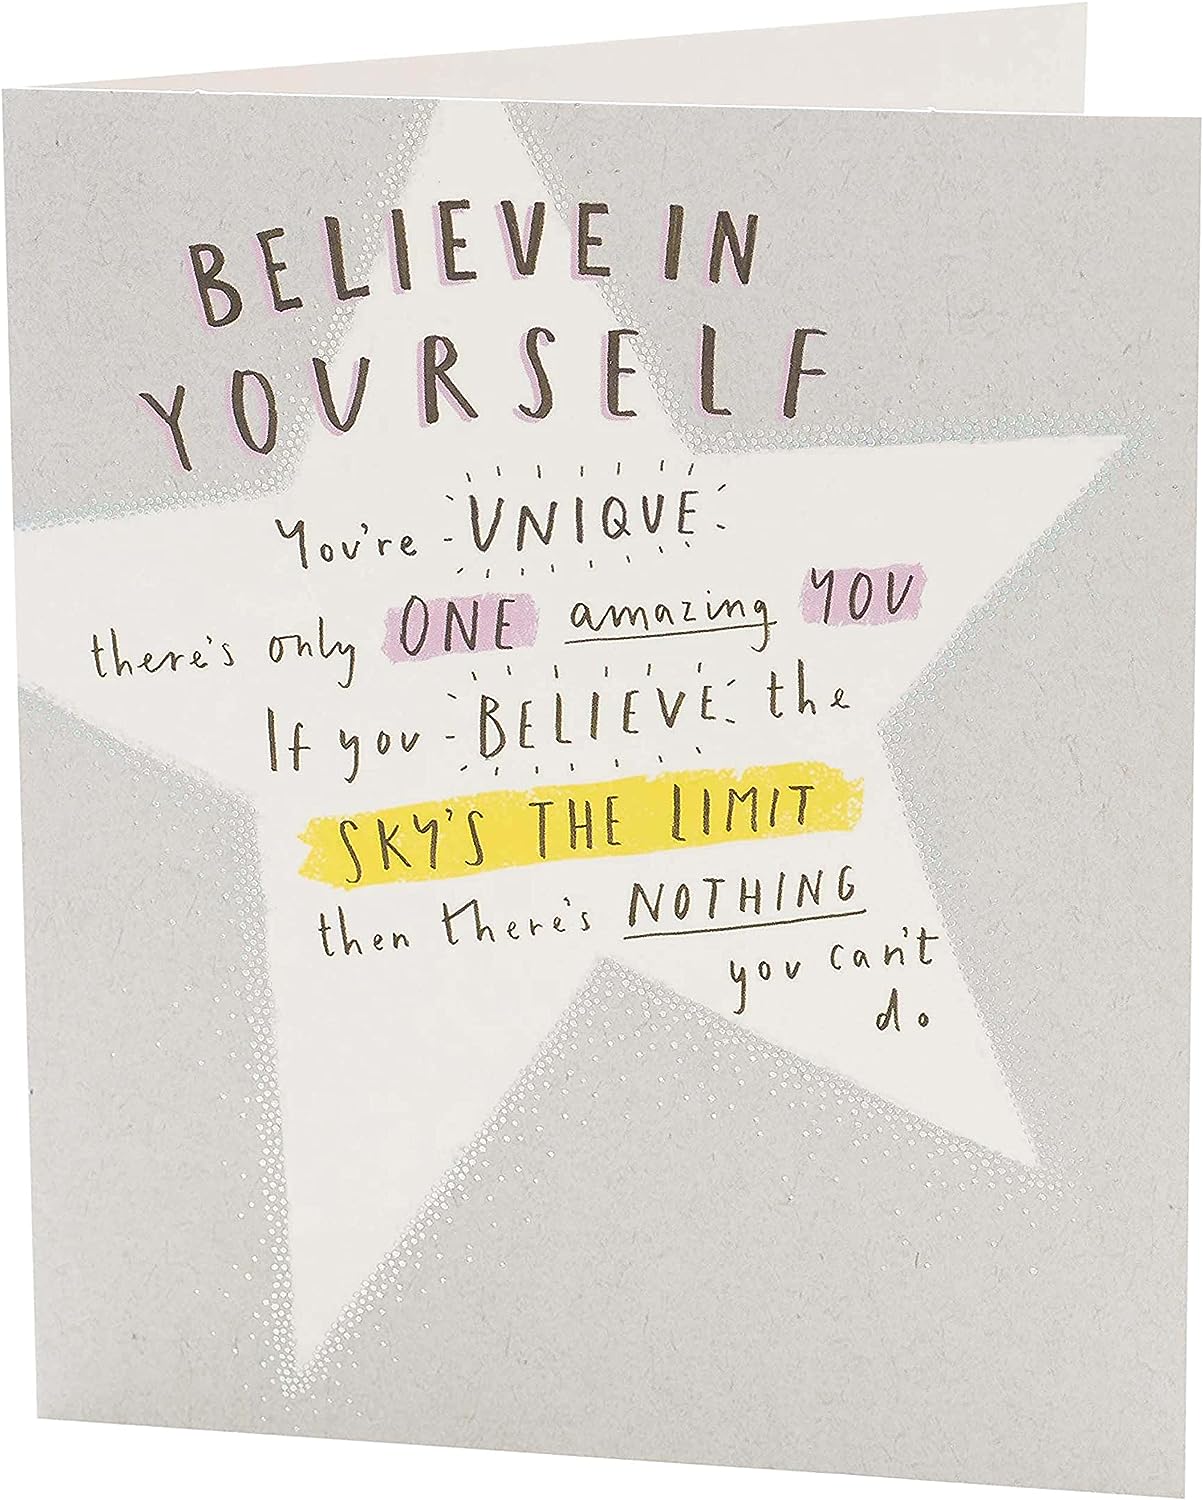 BELIEVE IN
YOURSELF
You're UNIQUE
there's only ONE amazing YOU
If you BELIEVE the
SKY'S THE LIMIT
then there's NOTHING
you can't
do